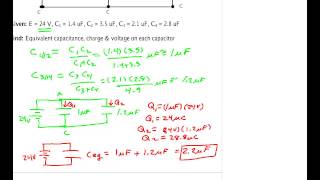 C C C
iven: E = 24 V, C₁ = 1.4 uF, C₂ = 3.5 uF, C₃ = 2.1 uF, C₄ = 2.8 uF
nd: Equivalent capacitance, charge & voltage on each capacitor
C₁,₂ = C₁C₂ / C₁+C₂ = (1.4)(3.5) / 1.4+3.5 μF = 1μF
C₃,₄ = C₃C₄ / C₃+C₄ = (2.1)(2.8) / 4.9 μF = 1.2μF
A
Q₁ Q₂
24V 1μF 1.2μF
C
Q₁ = (1μF)(24V)
Q₁ = 24μC
Q₂ = (24V)(1.2μF)
Q₂ = 28.8μC
24V Ceq = 1μF + 1.2μF = 2.2μF